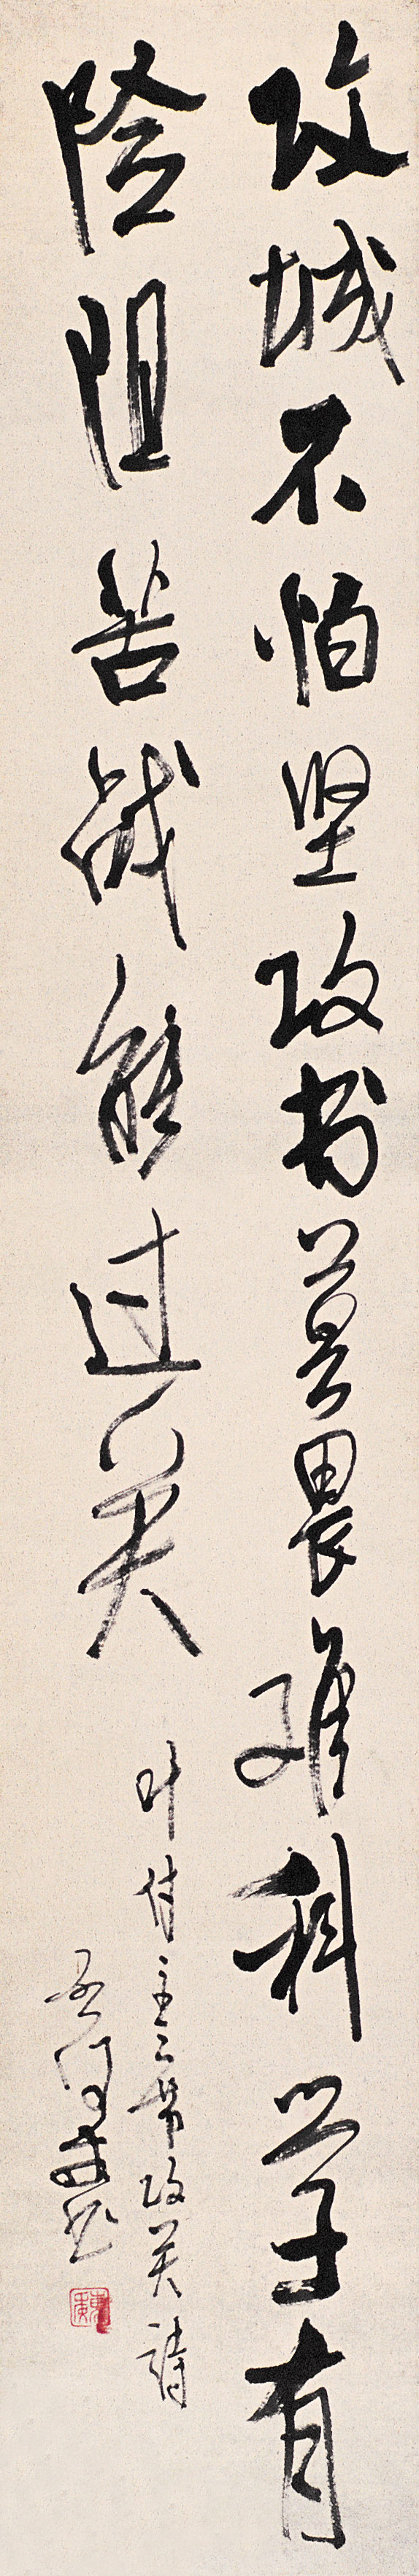 攻城不怕坚攻书莫畏难科学有
险阻苦战能过关
叶付主席攻关詩